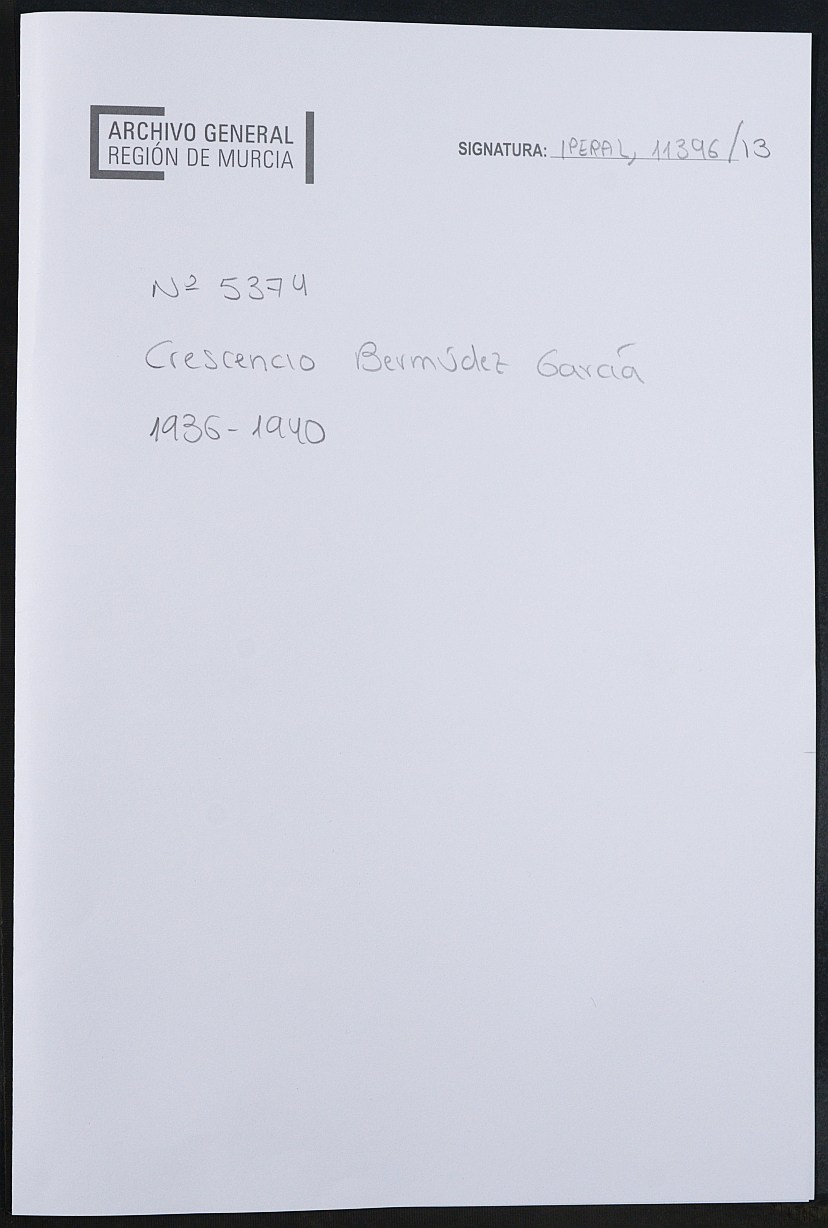 ARCHIVO GENERAL
REGIÓN DE MURCIA
SIGNATURA: IPERAL, 11396/13
Nº 5374
Crescencio Bermúdez García
1936-1940